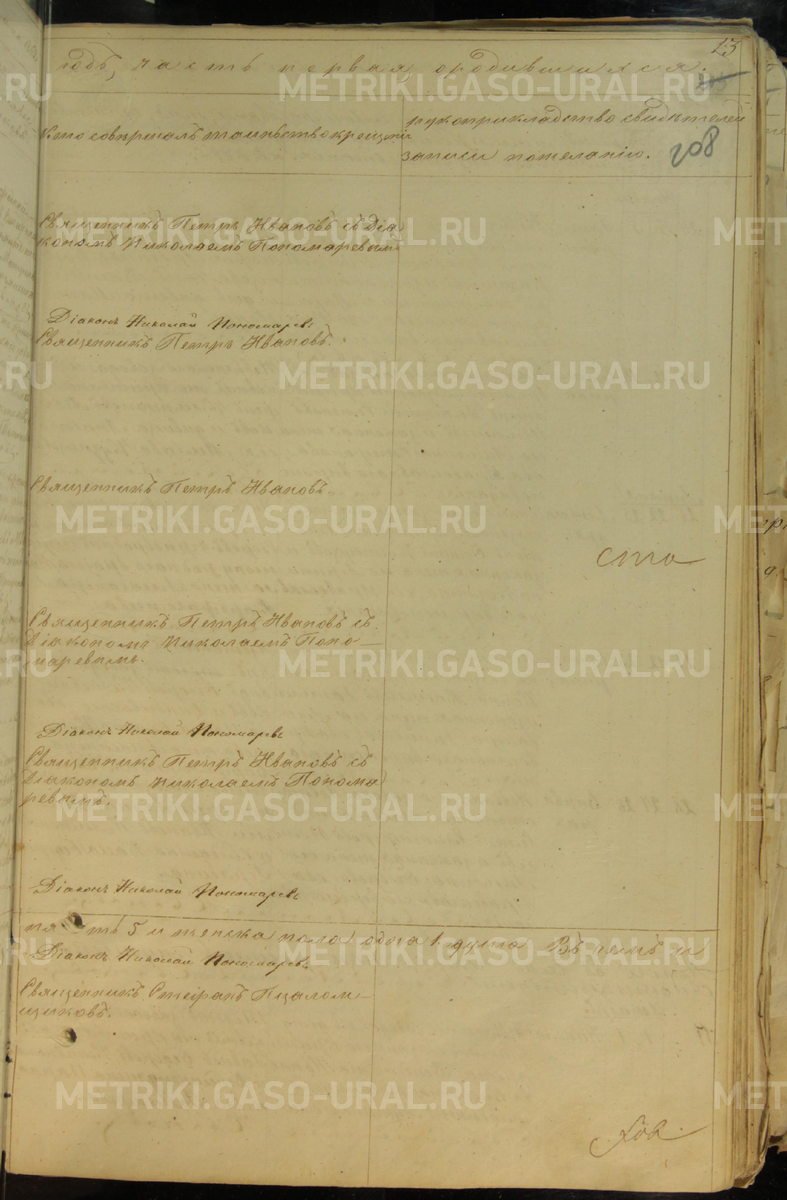 13
годъ, часть первая, о родившихся.
Кто совершалъ таинство крещенія
рукоприкладство свидѣтелей
записи по желанію.
208
Священникъ Петръ Ивановъ съ Діа
кономъ Николаемъ Пономаревым
Діаконъ Николай Пономаревъ
Священникъ Петръ Ивановъ.
Священникъ Петръ Ивановъ.
ста
Священникъ Петръ Ивановъ съ
Діакономъ Николаемъ Поно—
маревымъ.
Діаконъ Николай Пономаревъ
Священникъ Петръ Ивановъ съ
Діакономъ Николаемъ Понома
ревымъ.
Діаконъ Николай Пономаревъ
5 и женска пола одна 1 душа Въ чемъ и
Діаконъ Николай Пономаревъ
Священникъ Стефанъ Псалом—
щиковъ.
METRIKI.GASO-URAL.RU